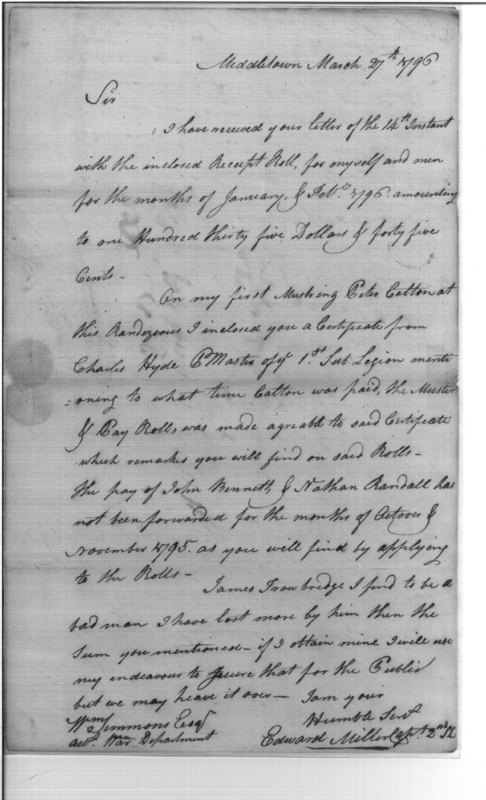 Middletown March 27th 1796
Sir
I have received your letter of the 14th Instant
with the inclosed Receipt Roll, for myself and men
for the months of January, & Feby 1796. amounting
to one Hundred thirty five Dollars & forty five
Cents -
On my first Mustring Peter Catton at
this Randezvous I inclosed you a Certificate from
Charles Hyde P Master of ye 1st Sub Legion menti
=oning to what time Catton was paid, the Muster
& Pay Rolls was made agreable to said Certificate
which remarks you will find on said Rolls -
the pay of John Bennett, & Nathan Randall has
not been forwarded for the months of October &
November 1795. as you will find by applying
to the Rolls -
James Trowbridge I find to be a
bad man I have lost more by him then the
Sum you mentioned - if I obtain mine I will use
my endeavour to secure that for the Public
but we may heave it over - I am your
Humble Servt
Wm Simmons Esqr
actt War Department
Edward Miller Capt 2nd SL